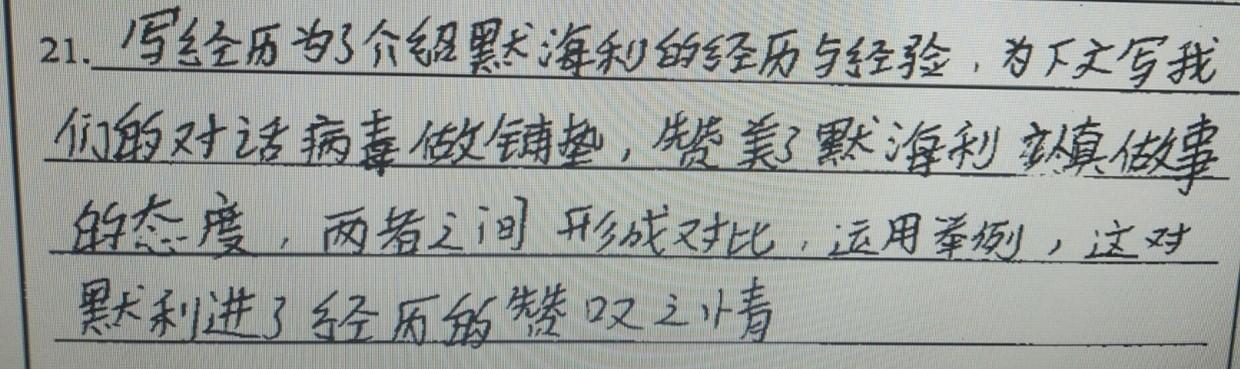 21. 写经历为了介绍默海利的经历与经验，为下文写我
们的对话病毒做铺垫，赞美了默海利认真做事
的态度，两者之间形成对比，运用举例，这对
默利进了经历的赞叹之情